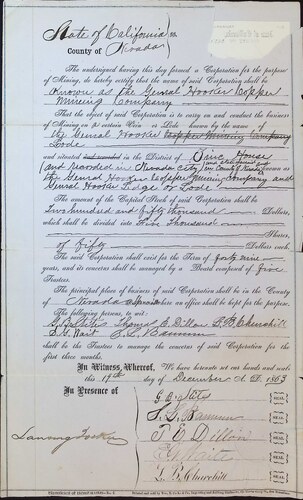 State of California, ss.
County of Nevada
The undersigned having this day formed a Corporation for the purpose
of Mining, do hereby certify that the name of said Corporation shall be
Known as the Genral Hooker Copper
Mineing Company
That the object of said Corporation is to carry on and conduct the business
of Mining on a certain Vein or Lode known by the name of
the Genral Hooker Copper Mineing Company
Lode
and situated and recorded in the District of
and recorded in Nevada City in County of Nevada known as
the Genral Hooker Copper Mineing Company and
Genral Hooker Ledge or Lode
The amount of the Capital Stock of said Corporation shall be
Two hundred and fifty thousand Dollars,
which shall be divided into Five Thousand
Shares,
of Fifty Dollars each.
The said Corporation shall exist for the Term of Forty nine
years, and its concerns shall be managed by a Board composed of Five
Trustees.
The principal place of business of said Corporation shall be in the County
of Nevada where an office shall be kept for the purpose.
The following persons, to wit:
Thomas E. Dillon L. B. Churchill
shall be the Trustees to manage the concerns of said Corporation for the
first three months.
In Witness Whereof, We have hereunto set our hands and seals
this 19th day of December A. D. 1863
In Presence of
T. E. Dillon
L. B. Churchill